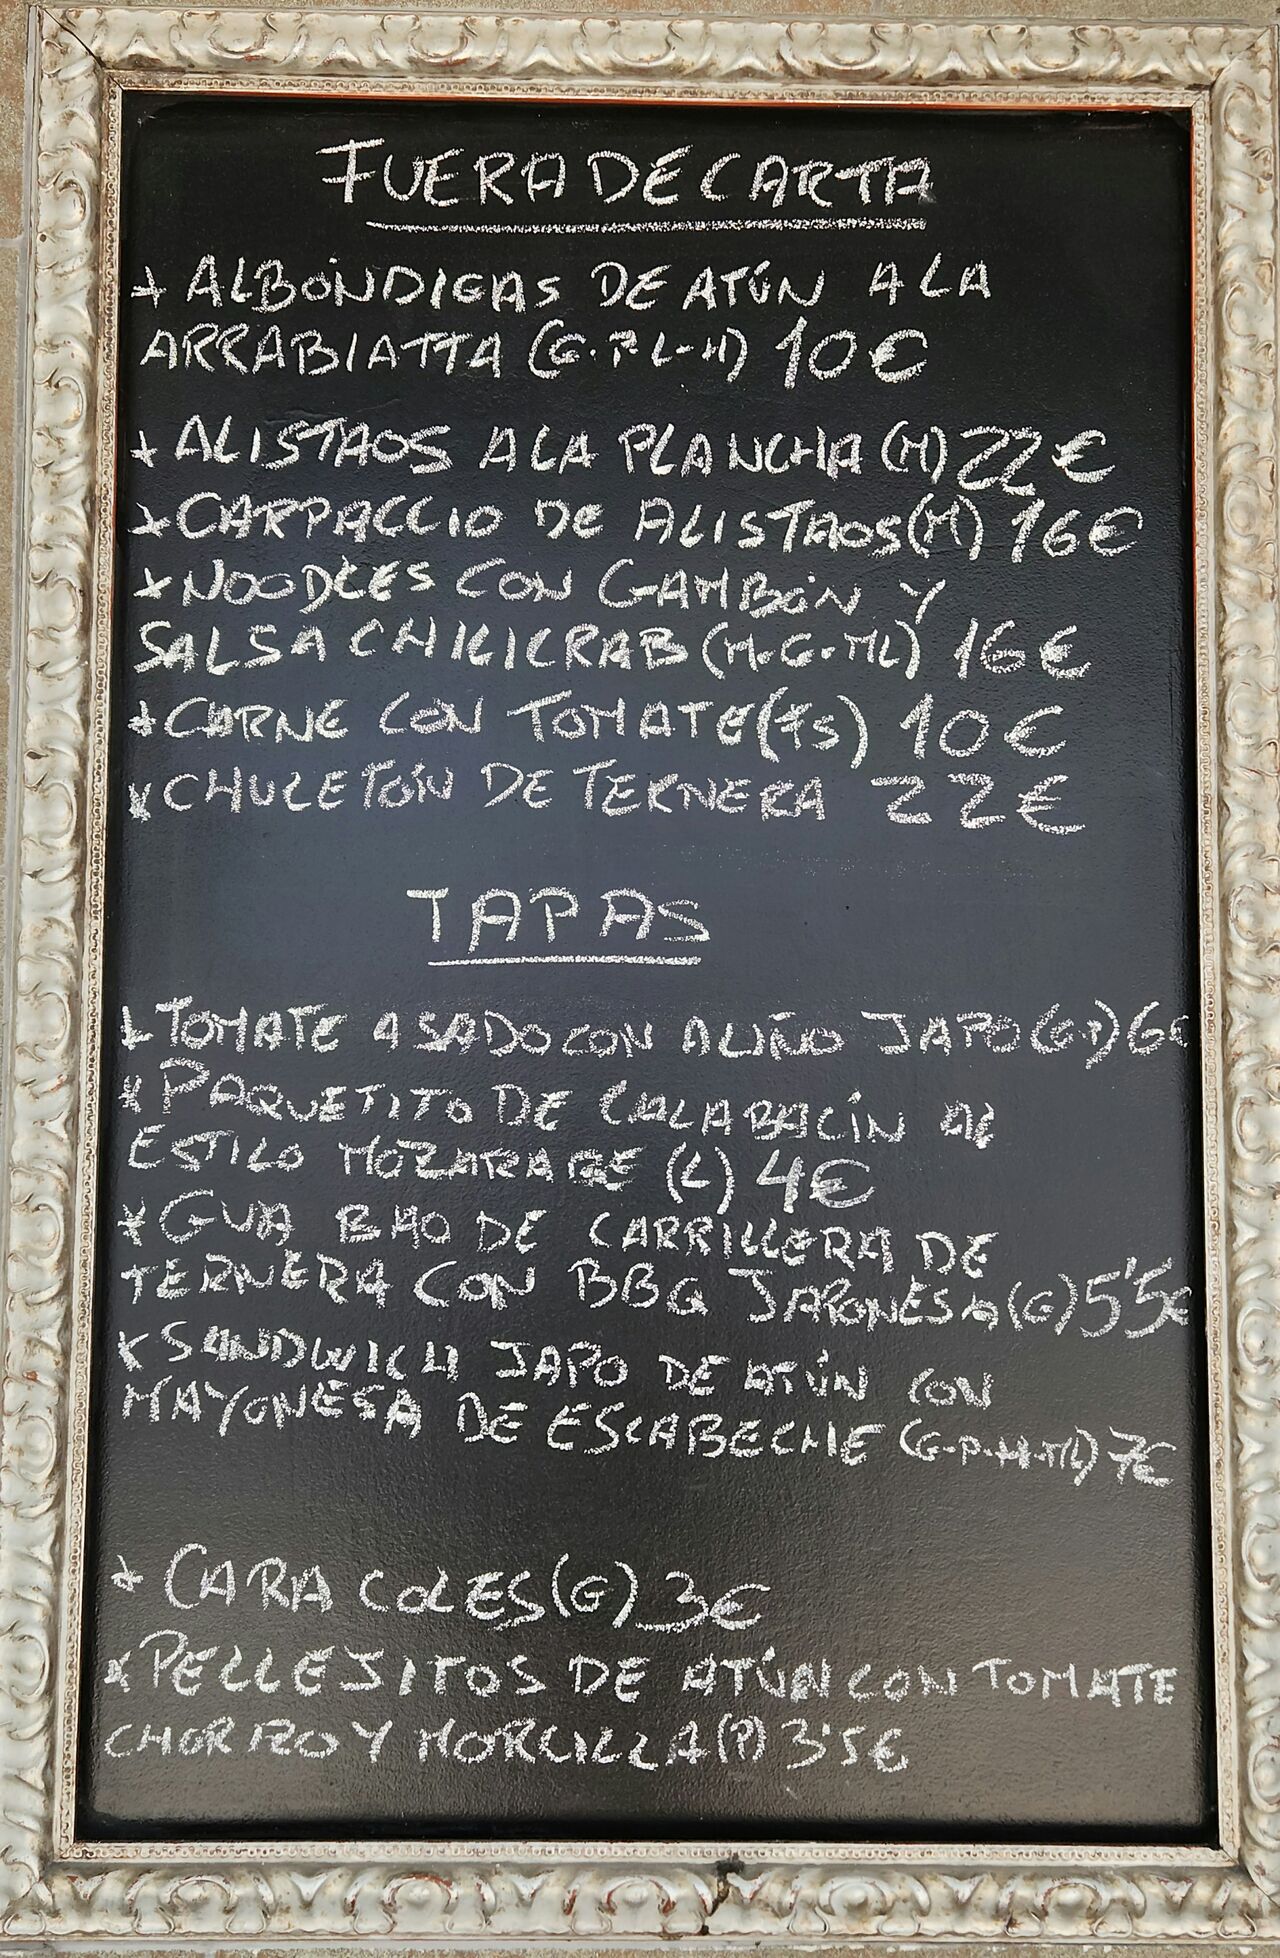 FUERA DE CARTA
* ALBÓNDIGAS DE ATÚN A LA
ARRABIATTA (G.P.L-H) 10€
* ALISTAOS A LA PLANCHA (M) 22€
* CARPACCIO DE ALISTAOS (M) 16€
* NOODLES CON GAMBÓN Y
SALSA CHILICRAB (M-G-ML) 16€
* CARNE CON TOMATE (FS) 10€
* CHULETÓN DE TERNERA 22€
TAPAS
* TOMATE ASADO CON ALIÑO JAPO (G.P) 6€
* PAQUETITO DE CALABACÍN AL
ESTILO MOZARABE (L) 4€
* GUA BAO DE CARRILLERA DE
TERNERA CON BBQ JAPONESA (G) 5'5€
* SANDWICH JAPO DE ATÚN CON
MAYONESA DE ESCABECHE (G-P-H-ML) 7€
* CARACOLES (G) 3€
* PELLEJITOS DE ATÚN CON TOMATE
CHORIZO Y MORCILLA (P) 3'5€